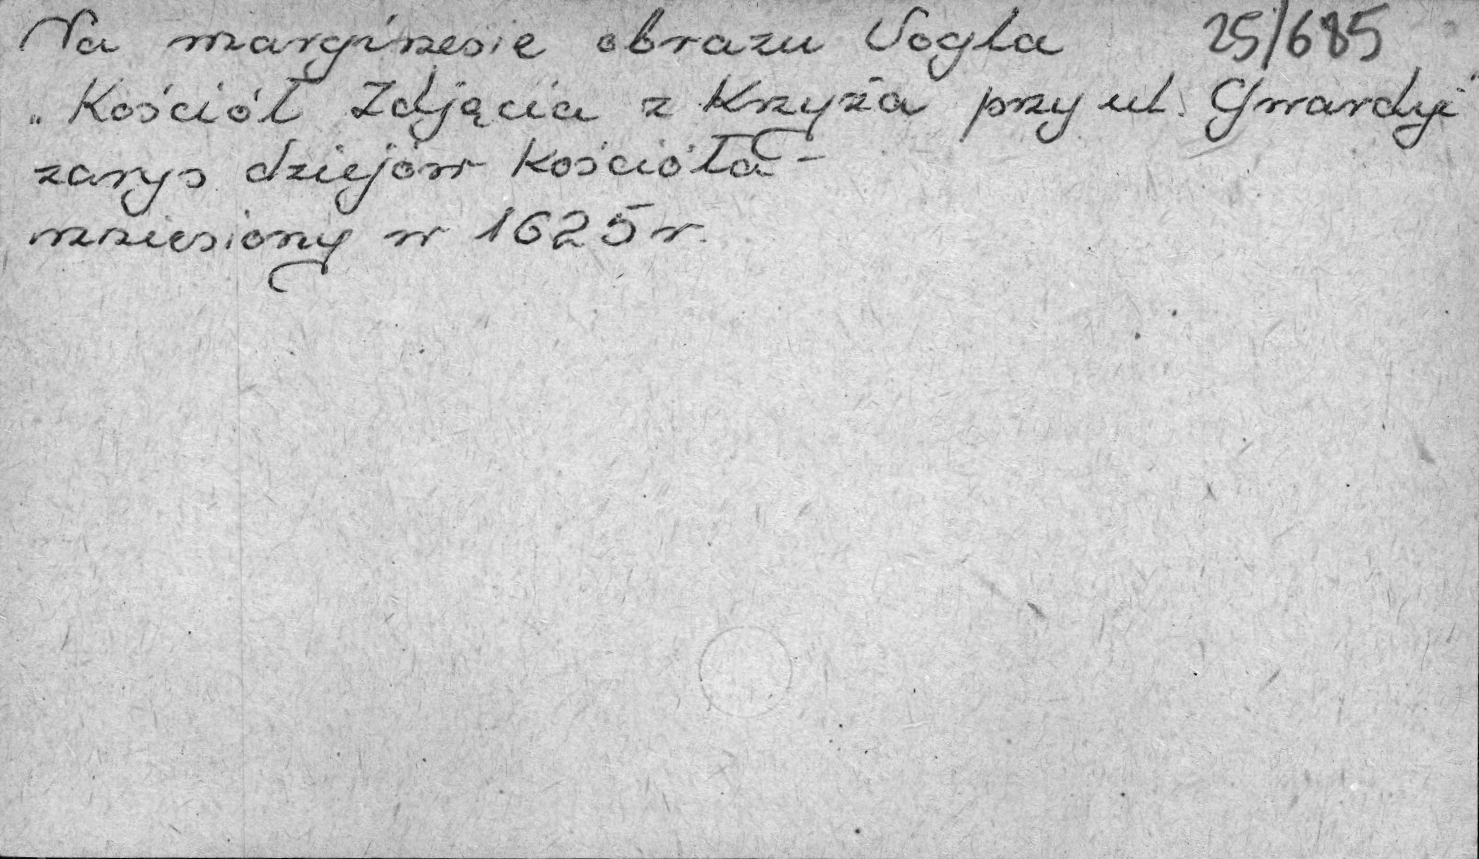 Na marginesie obrazu Vogla 25/685
„Kościół Zdjęcia z Krzyża przy ul. Gwardyi"
zarys dziejów Kościoła -
wzniesiony w 1625 r.